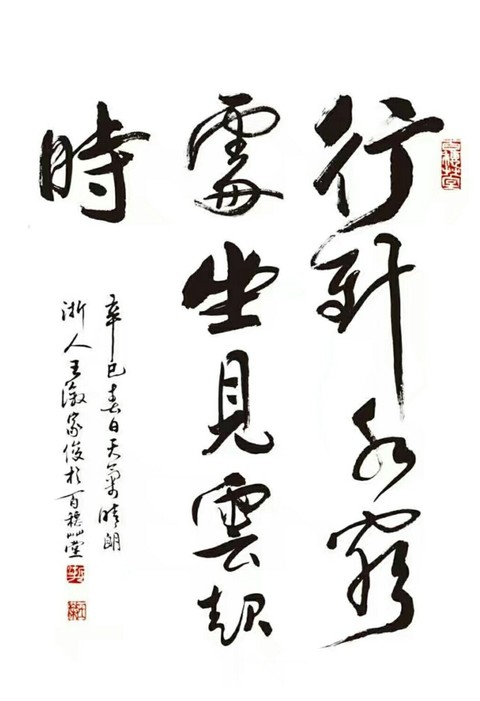 行到水窮
處坐見雲起
時
辛巳春日天氣晴朗
浙人王家俊於百穗堂